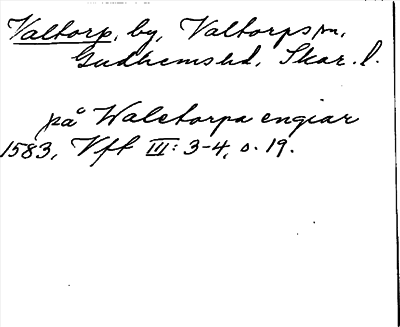 Valtorp, by, Valtorps sn,
Gudhems hd, Skar. l.
på Waletorpa engiar
1583, Vft III: 3-4, s. 19.